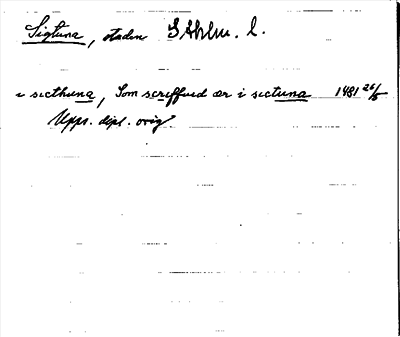 Sigtuna, staden Sthlm. l.
i secthuna, Som screffuid är i sectuna 1481 26/5
Upps. dipl. orig